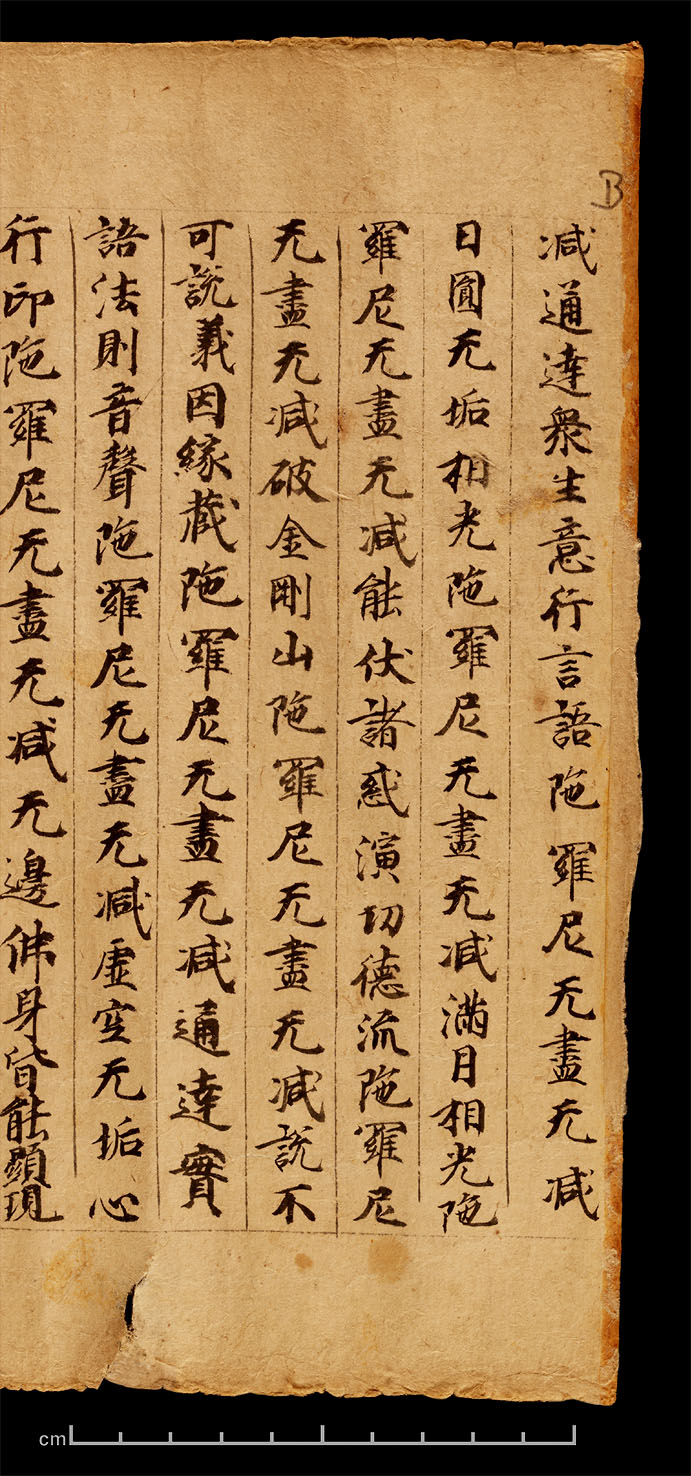 B
减通達衆生意行言語陁羅尼无盡无减
日圓无垢相光陁羅尼无盡无减滿日相光陁
羅尼无盡无减能伏諸惑演㓛德流陁羅尼
无盡无减破金剛山陁羅尼无盡无减説不
可説義因緣藏陁羅尼无盡无减通達實
語法則音聲陁羅尼无盡无减虛空无垢心
行印陁羅尼无盡无减无邊佛身皆能顯現
cm